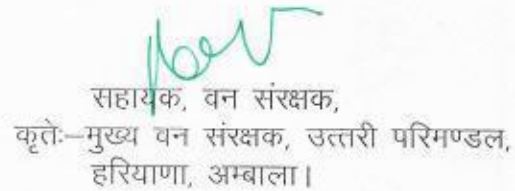 सहायक, वन संरक्षक,
कृतेः–मुख्य वन संरक्षक, उत्तरी परिमण्डल,
हरियाणा, अम्बाला।